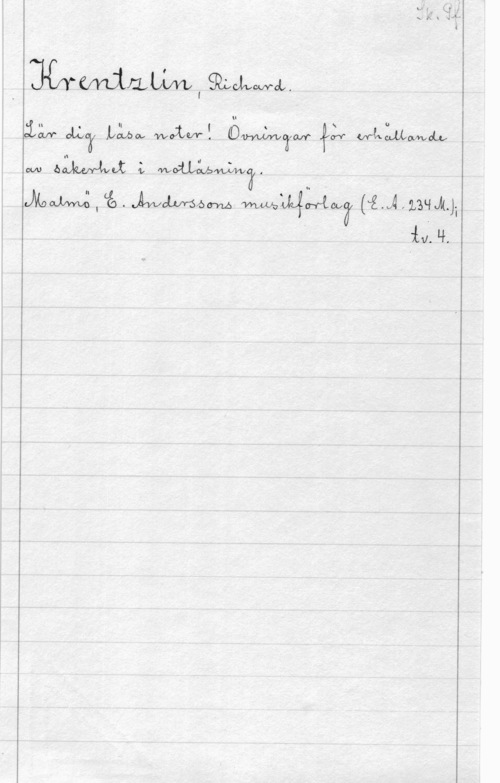 Sk. 9f
Krentzlin, Richard.
Lär dig läsa noter! Övningar för erhållande
av säkerhet i notläsning.
Malmö, E. Anderssons musikförlag (E.A. 234 M.);
tv. 4.